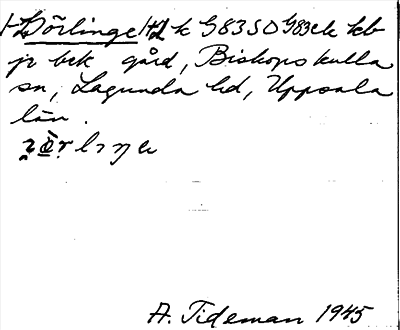 Dörlinge k G83SO G83ck kb
jr brk gård, Biskopskulla
sn, Lagunda hd, Uppsala
län.
A. Tideman 1945